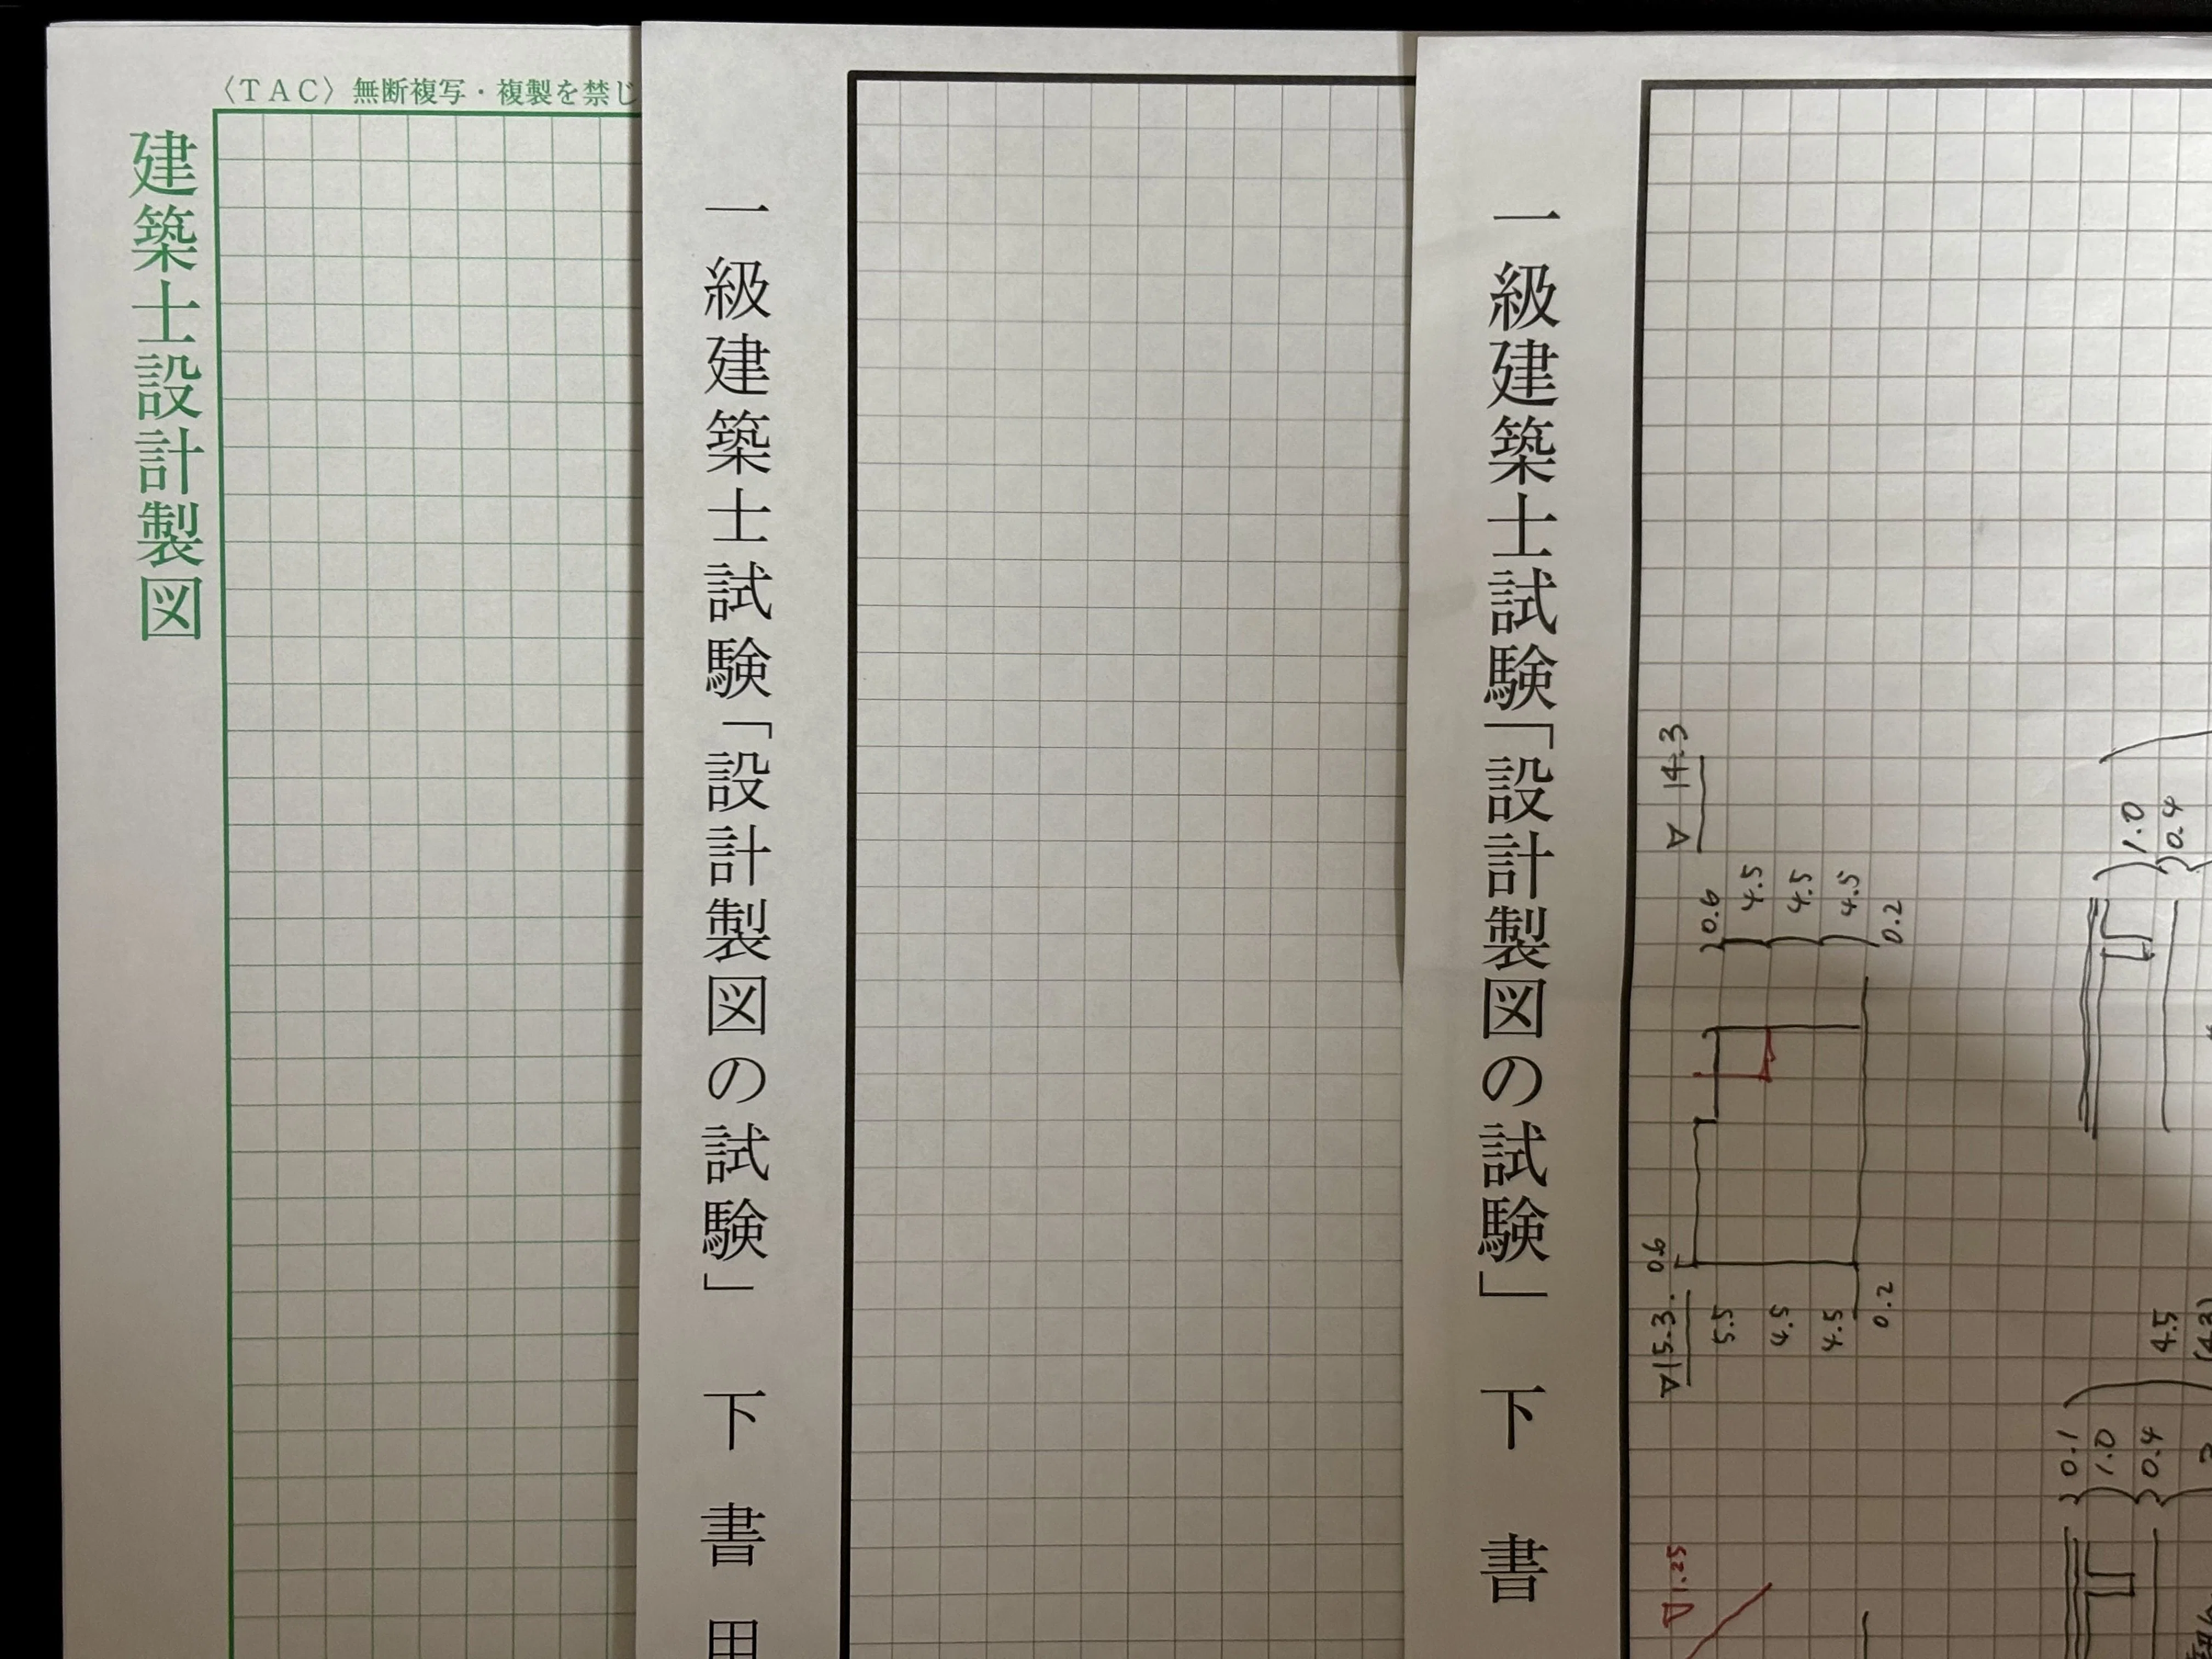 〈TAC〉無断複写・複製を禁じ
建築士設計製図
一級建築士試験「設計製図の試験」 下書用
一級建築士試験「設計製図の試験」 下書
14.3
0.6
4.5
4.5
4.5
0.2
1.0
0.4
15.3
0.6
5.5
4.5
4.5
0.2
4.5
0.1
1.0
0.4
1.25